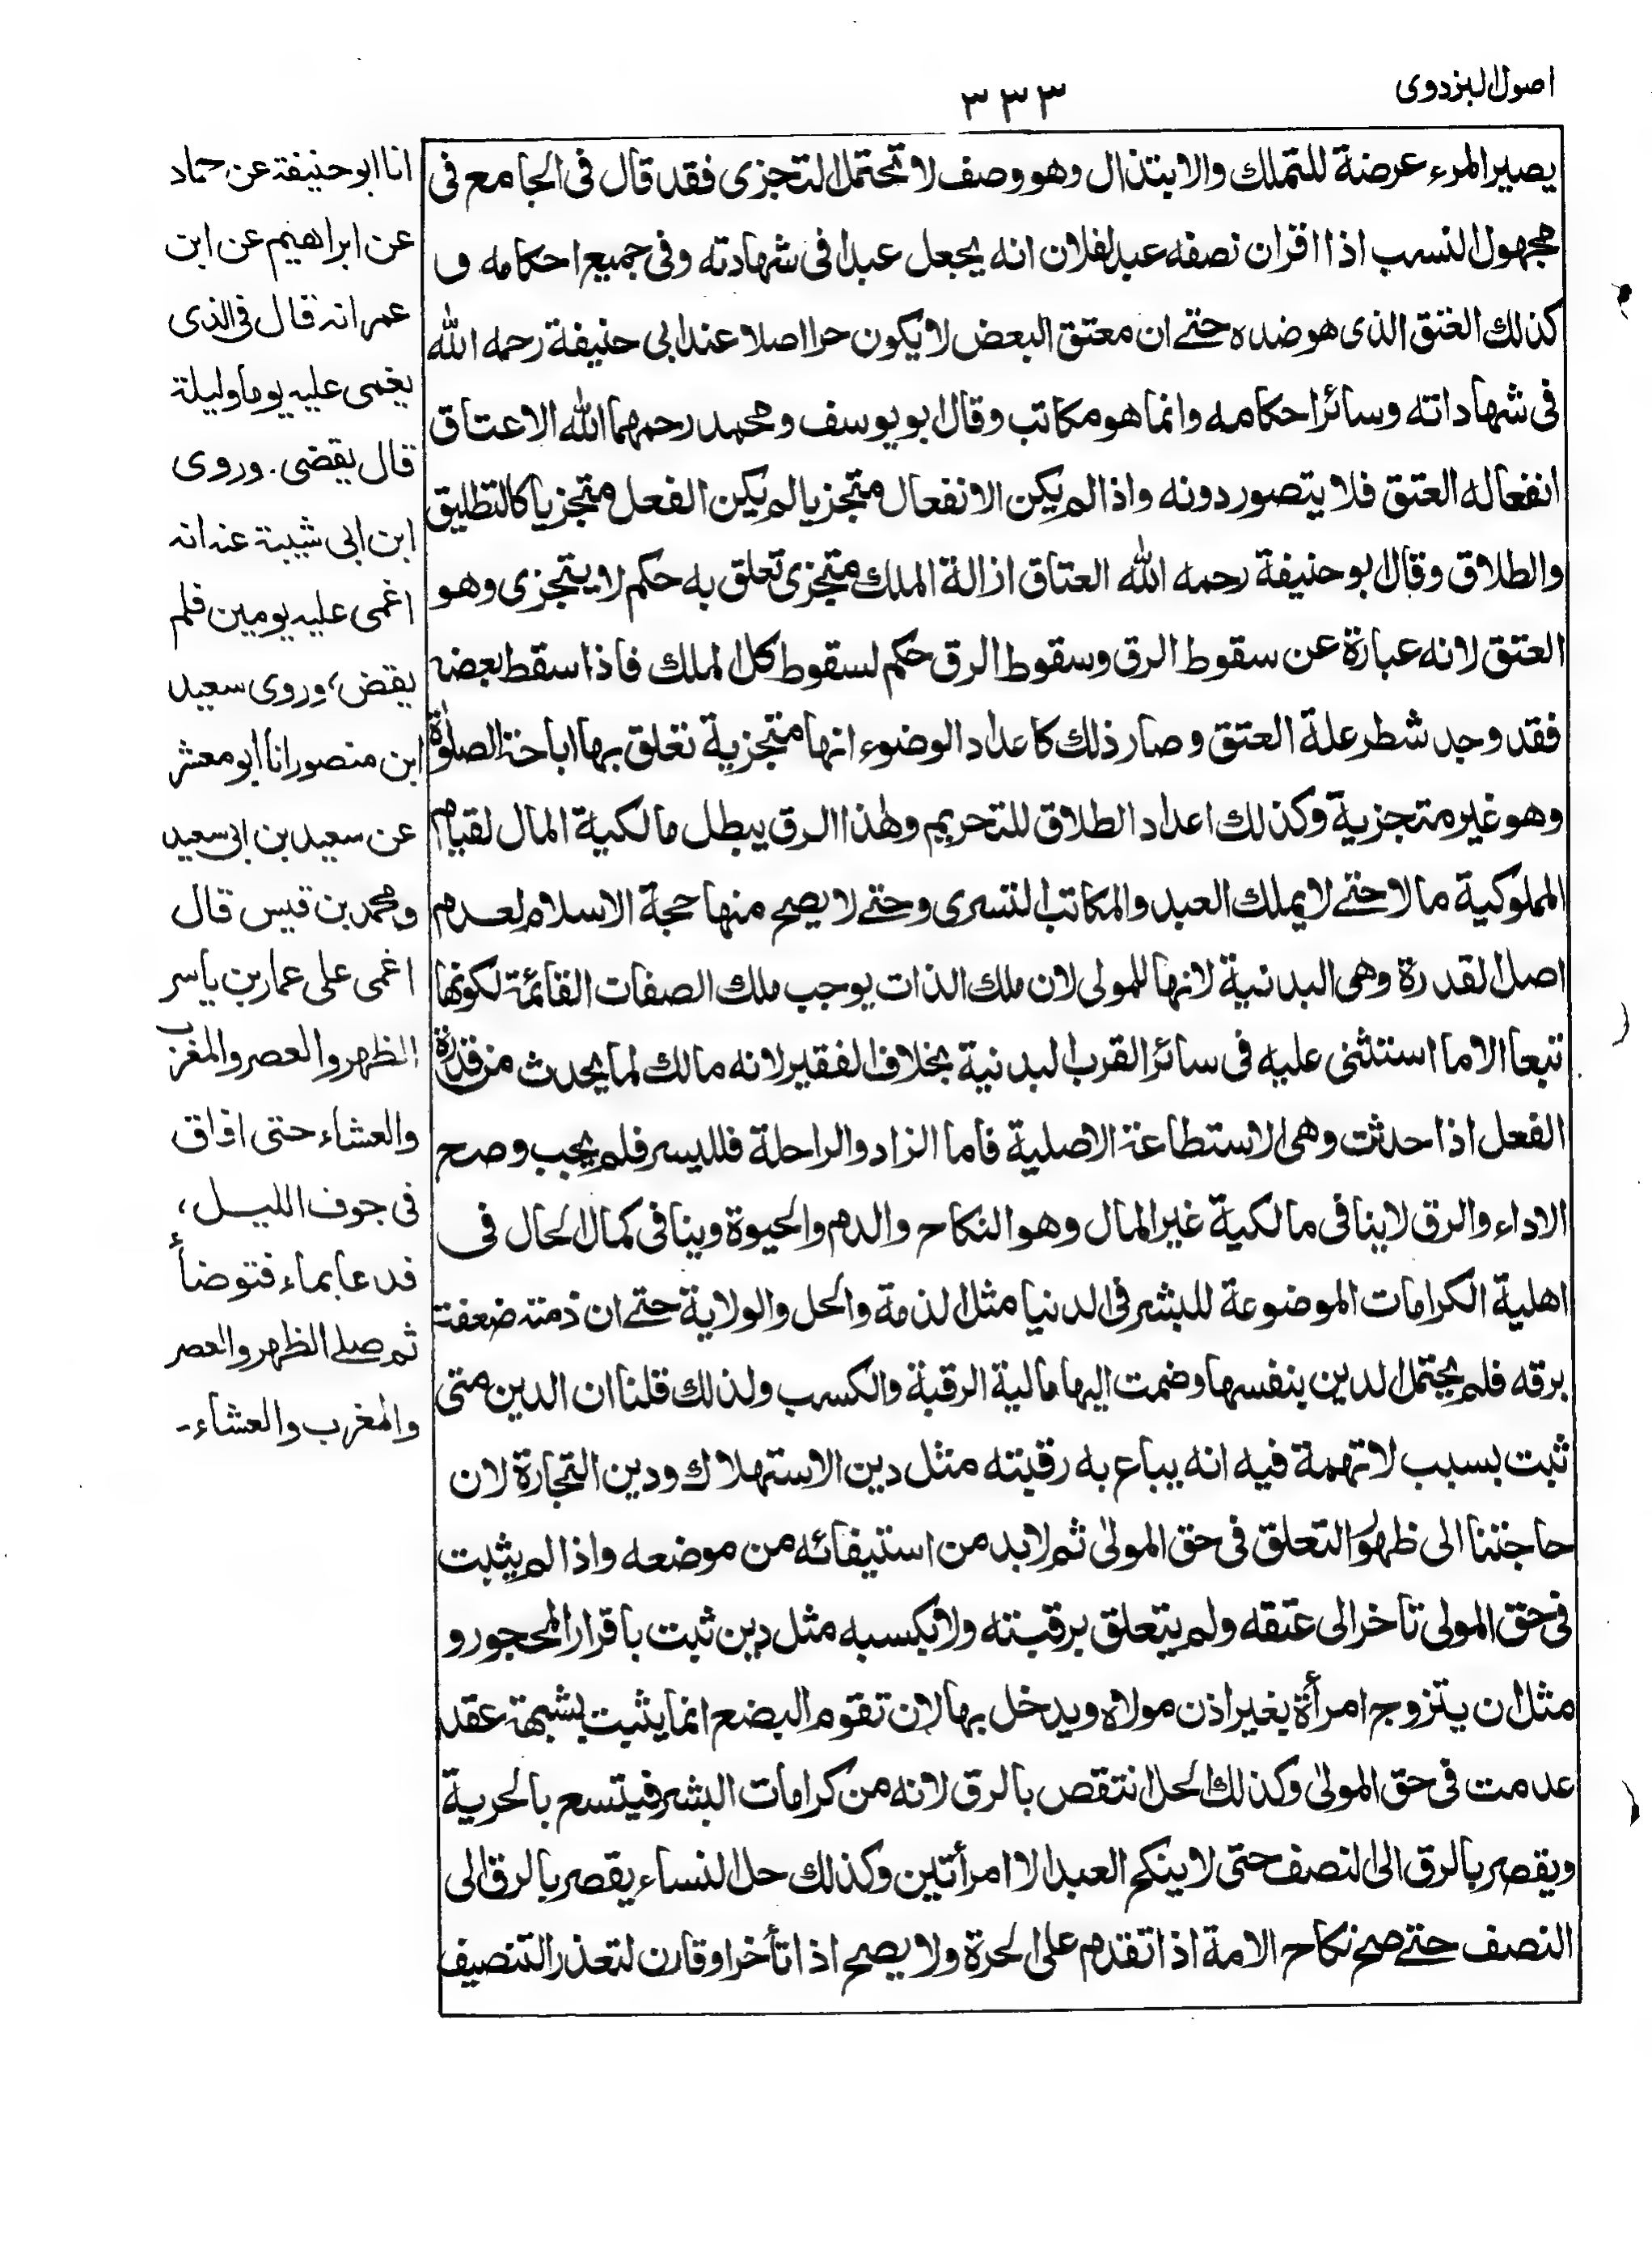 اصول البزدوى
٣٣٣
يصير المرء عرضة للتملك والابتذال وهو وصف لا تحتمل التجزى فقد قال فى الجامع فى
مجهول النسب اذا اقر ان نصفه عبد لفلان انه يجعل عبدا فى شهادته وفى جميع احكامه و
كذلك العتق الذى هو ضده حتے ان معتق البعض لا يكون حرا اصلا عند ابى حنيفة رحمه الله
فى شهاداته وسائر احكامه وانما هو مكاتب وقال ابو يوسف ومحمد رحمهما الله الاعتاق
انفعاله العتق فلا يتصور دونه واذا لم يكن الانفعال متجزيا لم يكن الفعل متجزيا كالتطليق
والطلاق وقال ابو حنيفة رحمه الله العتاق ازالة الملك متجزى تعلق به حكم لا يتجزى وهو
العتق لانه عبارة عن سقوط الرق وسقوط الرق حكم لسقوط كل الملك فاذا سقط بعضه
فقد وجد شطر علة العتق وصار ذلك كاعداد الوضوء انها متجزية تعلق بها اباحة الصلوٰة
وهو غير متجزية وكذلك اعداد الطلاق للتحريم ولهذا الرق يبطل مالكية المال لقيام
المملوكية مالا حتے لا يملك العبد والمكاتب التسرى وحتے لا يصح منها حجة الاسلام لعدم
اصل القدرة وهى البدنية لانها للمولى لان ملك الذات يوجب ملك الصفات القائمة لكونها
تبعا الا ما استثنى عليه فى سائر القرب البدنية بخلاف الفقير لانه مالك لما يحدث من قدرة
الفعل اذا حدثت وهى الاستطاعة الاصلية فاما الزاد والراحلة فلليسر فلم يجب وصح
الاداء والرق لا ينافى مالكية غير المال وهو النكاح والدم والحيوة وينافى كمال الحال فى
اهلية الكرامات الموضوعة للبشر فى الدنيا مثل الذمة والحل والولاية حتے ان ذمته ضعفت
برقه فلم يحتمل الدين بنفسها وضمت اليها مالية الرقبة والكسب ولذلك قلنا ان الدين متى
ثبت بسبب لا تهمة فيه انه يباع به رقبته مثل دين الاستهلاك ودين التجارة لان
حاجتنا الى ظهور التعلق فى حق المولىٰ ثم لا بد من استيفائه من موضعه واذا لم يثبت
فى حق المولى تاخر الى عتقه ولم يتعلق برقبته ولا بكسبه مثل دين ثبت باقرار المحجور و
مثل ان يتزوج امرأة بغير اذن مولاه ويدخل بها لان تقوم البضع انما يثبت بشبهة عقد
عدمت فى حق المولىٰ وكذلك الحل انتقص بالرق لانه من كرامات البشر فيتسع بالحرية
ويقصر بالرق الى النصف حتى لا ينكح العبد الا امرأتين وكذلك حل النساء يقصر بالرق الى
النصف حتے صح نكاح الامة اذا تقدم على الحرة ولا يصح اذا تأخر او قارن لتعذر التنصيف
انا ابو حنيفة عن حماد
عن ابراهيم عن ابن
عمر انه قال فى الذى
يغمى عليه يوما وليلة
قال يقضى. وروى
ابن ابى شيبة عنه انه
اغمى عليه يومين فلم
يقض، وروى سعيد
ابن منصور انا ابو معشر
عن سعيد بن ابى سعيد
ومحمد بن قيس قال
اغمى على عمار بن ياسر
الظهر والعصر والمغرب
والعشاء حتى افاق
فى جوف الليل،
فدعا بماء فتوضأ
ثم صلے الظهر والعصر
والمغرب والعشاء-